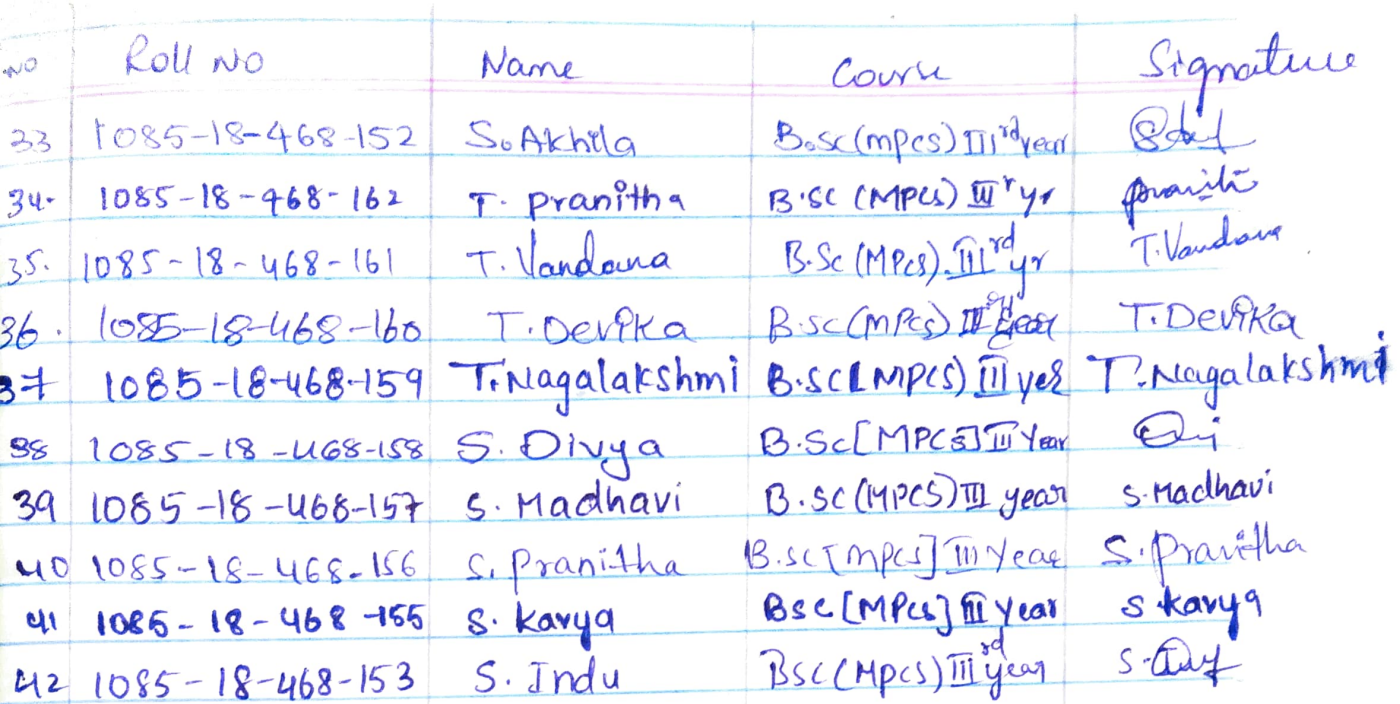 NO Roll NO Name Course Signature
33 1085-18-468-152 S. Akhila B.Sc(mpcs) III rd year
34. 1085-18-468-162 T. Pranitha B.SC (MPCS) III r yr
35. 1085-18-468-161 T. Vandana B.Sc (MPCS). III rd yr T. Vandana
36. 1085-18-468-160 T. Devika B.sc(mpcs) III year T. Devika
37 1085-18-468-159 T. Nagalakshmi B.SC[MPCS) III yer T. Nagalakshmi
38 1085-18-468-158 S. Divya B.Sc[MPCS] III Year
39 1085-18-468-157 S. Madhavi B.SC(MPCS) III year S. Madhavi
40 1085-18-468-156 S. Pranitha B.sc[mpcs] III Year S. Pranitha
41 1085-18-468-155 S. Kavya BSC[MPCS] III Year S Kavya
42 1085-18-468-153 S. Indu BSC(MPCS) III rd year S.